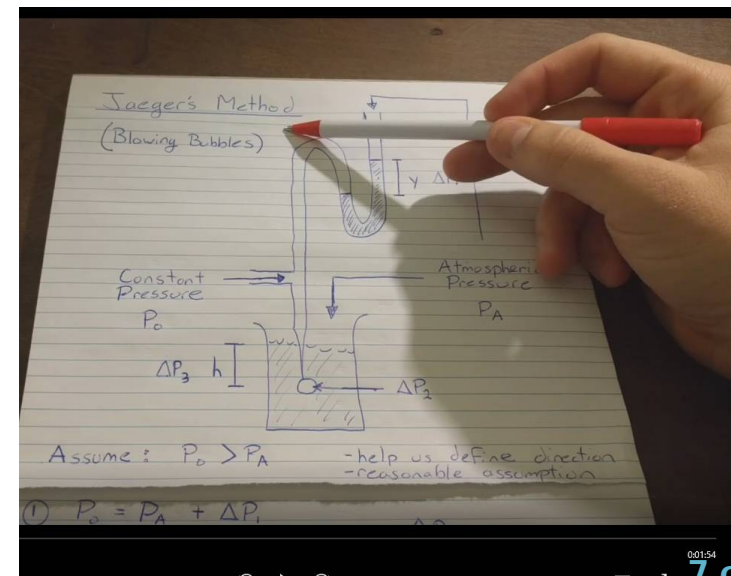 Jaeger's Method
(Blowing Bubbles)
y
Constant
Pressure
P₀
Pressure
P_A
ΔP₃ h
ΔP₂
Assume : P₀ > P_A
- help us define direction
- reasonable assumption
① P₀ = P_A + ΔP₁
0:01:54